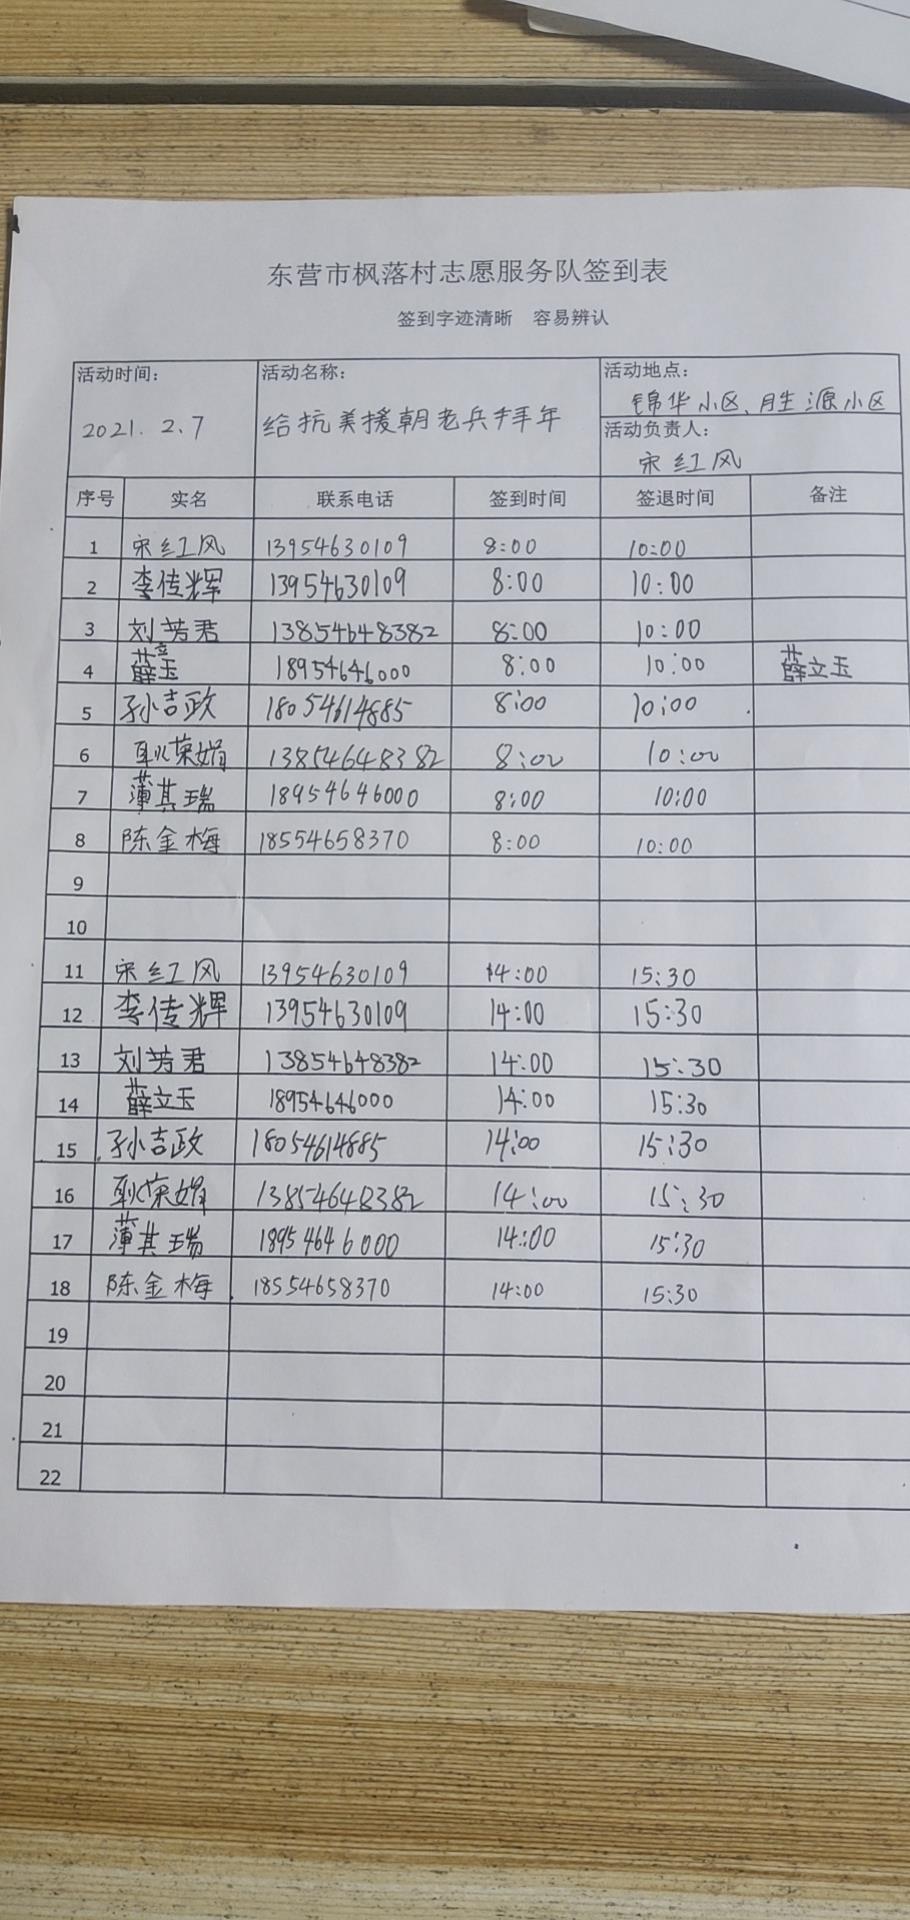 东营市枫落村志愿服务队签到表
签到字迹清晰 容易辨认
活动时间: 活动名称: 活动地点:
2021.2.7 给抗美援朝老兵拜年 锦华小区、胜源小区
活动负责人:
宋红风
序号 实名 联系电话 签到时间 签退时间 备注
1 宋红风 13954630109 8:00 10:00
2 李传辉 13954630109 8:00 10:00
3 刘芳君 13854648382 8:00 10:00
4 薛立玉 18954646000 8:00 10:00 薛立玉
5 孙吉政 18054614885 8:00 10:00
6 耿荣娟 13854648382 8:00 10:00
7 薄其瑞 18954646000 8:00 10:00
8 陈金梅 18554658370 8:00 10:00
9
10
11 宋红风 13954630109 14:00 15:30
12 李传辉 13954630109 14:00 15:30
13 刘芳君 13854648382 14:00 15:30
14 薛立玉 18954646000 14:00 15:30
15 孙吉政 18054614885 14:00 15:30
16 耿荣娟 13854648382 14:00 15:30
17 薄其瑞 18954646000 14:00 15:30
18 陈金梅 18554658370 14:00 15:30
19
20
21
22